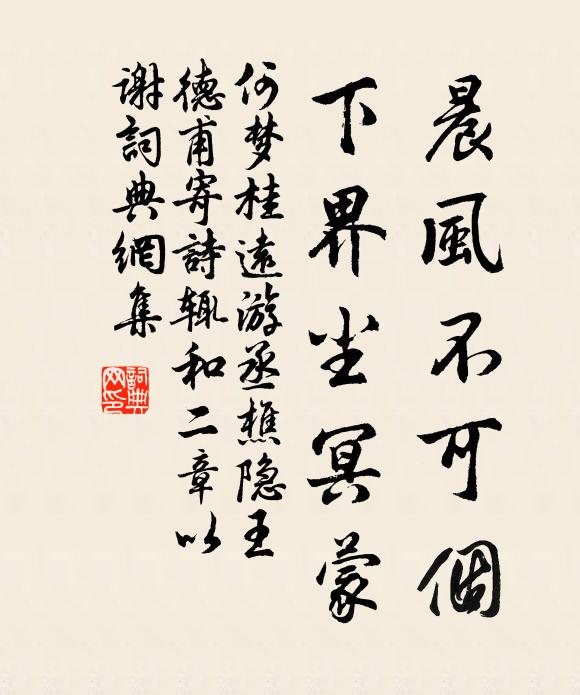 晨風不可個
下界尘冥蒙
何梦桂遠游丞樵隐王
德甫寄詩辄和二章以
謝詞典網集
詞典网印